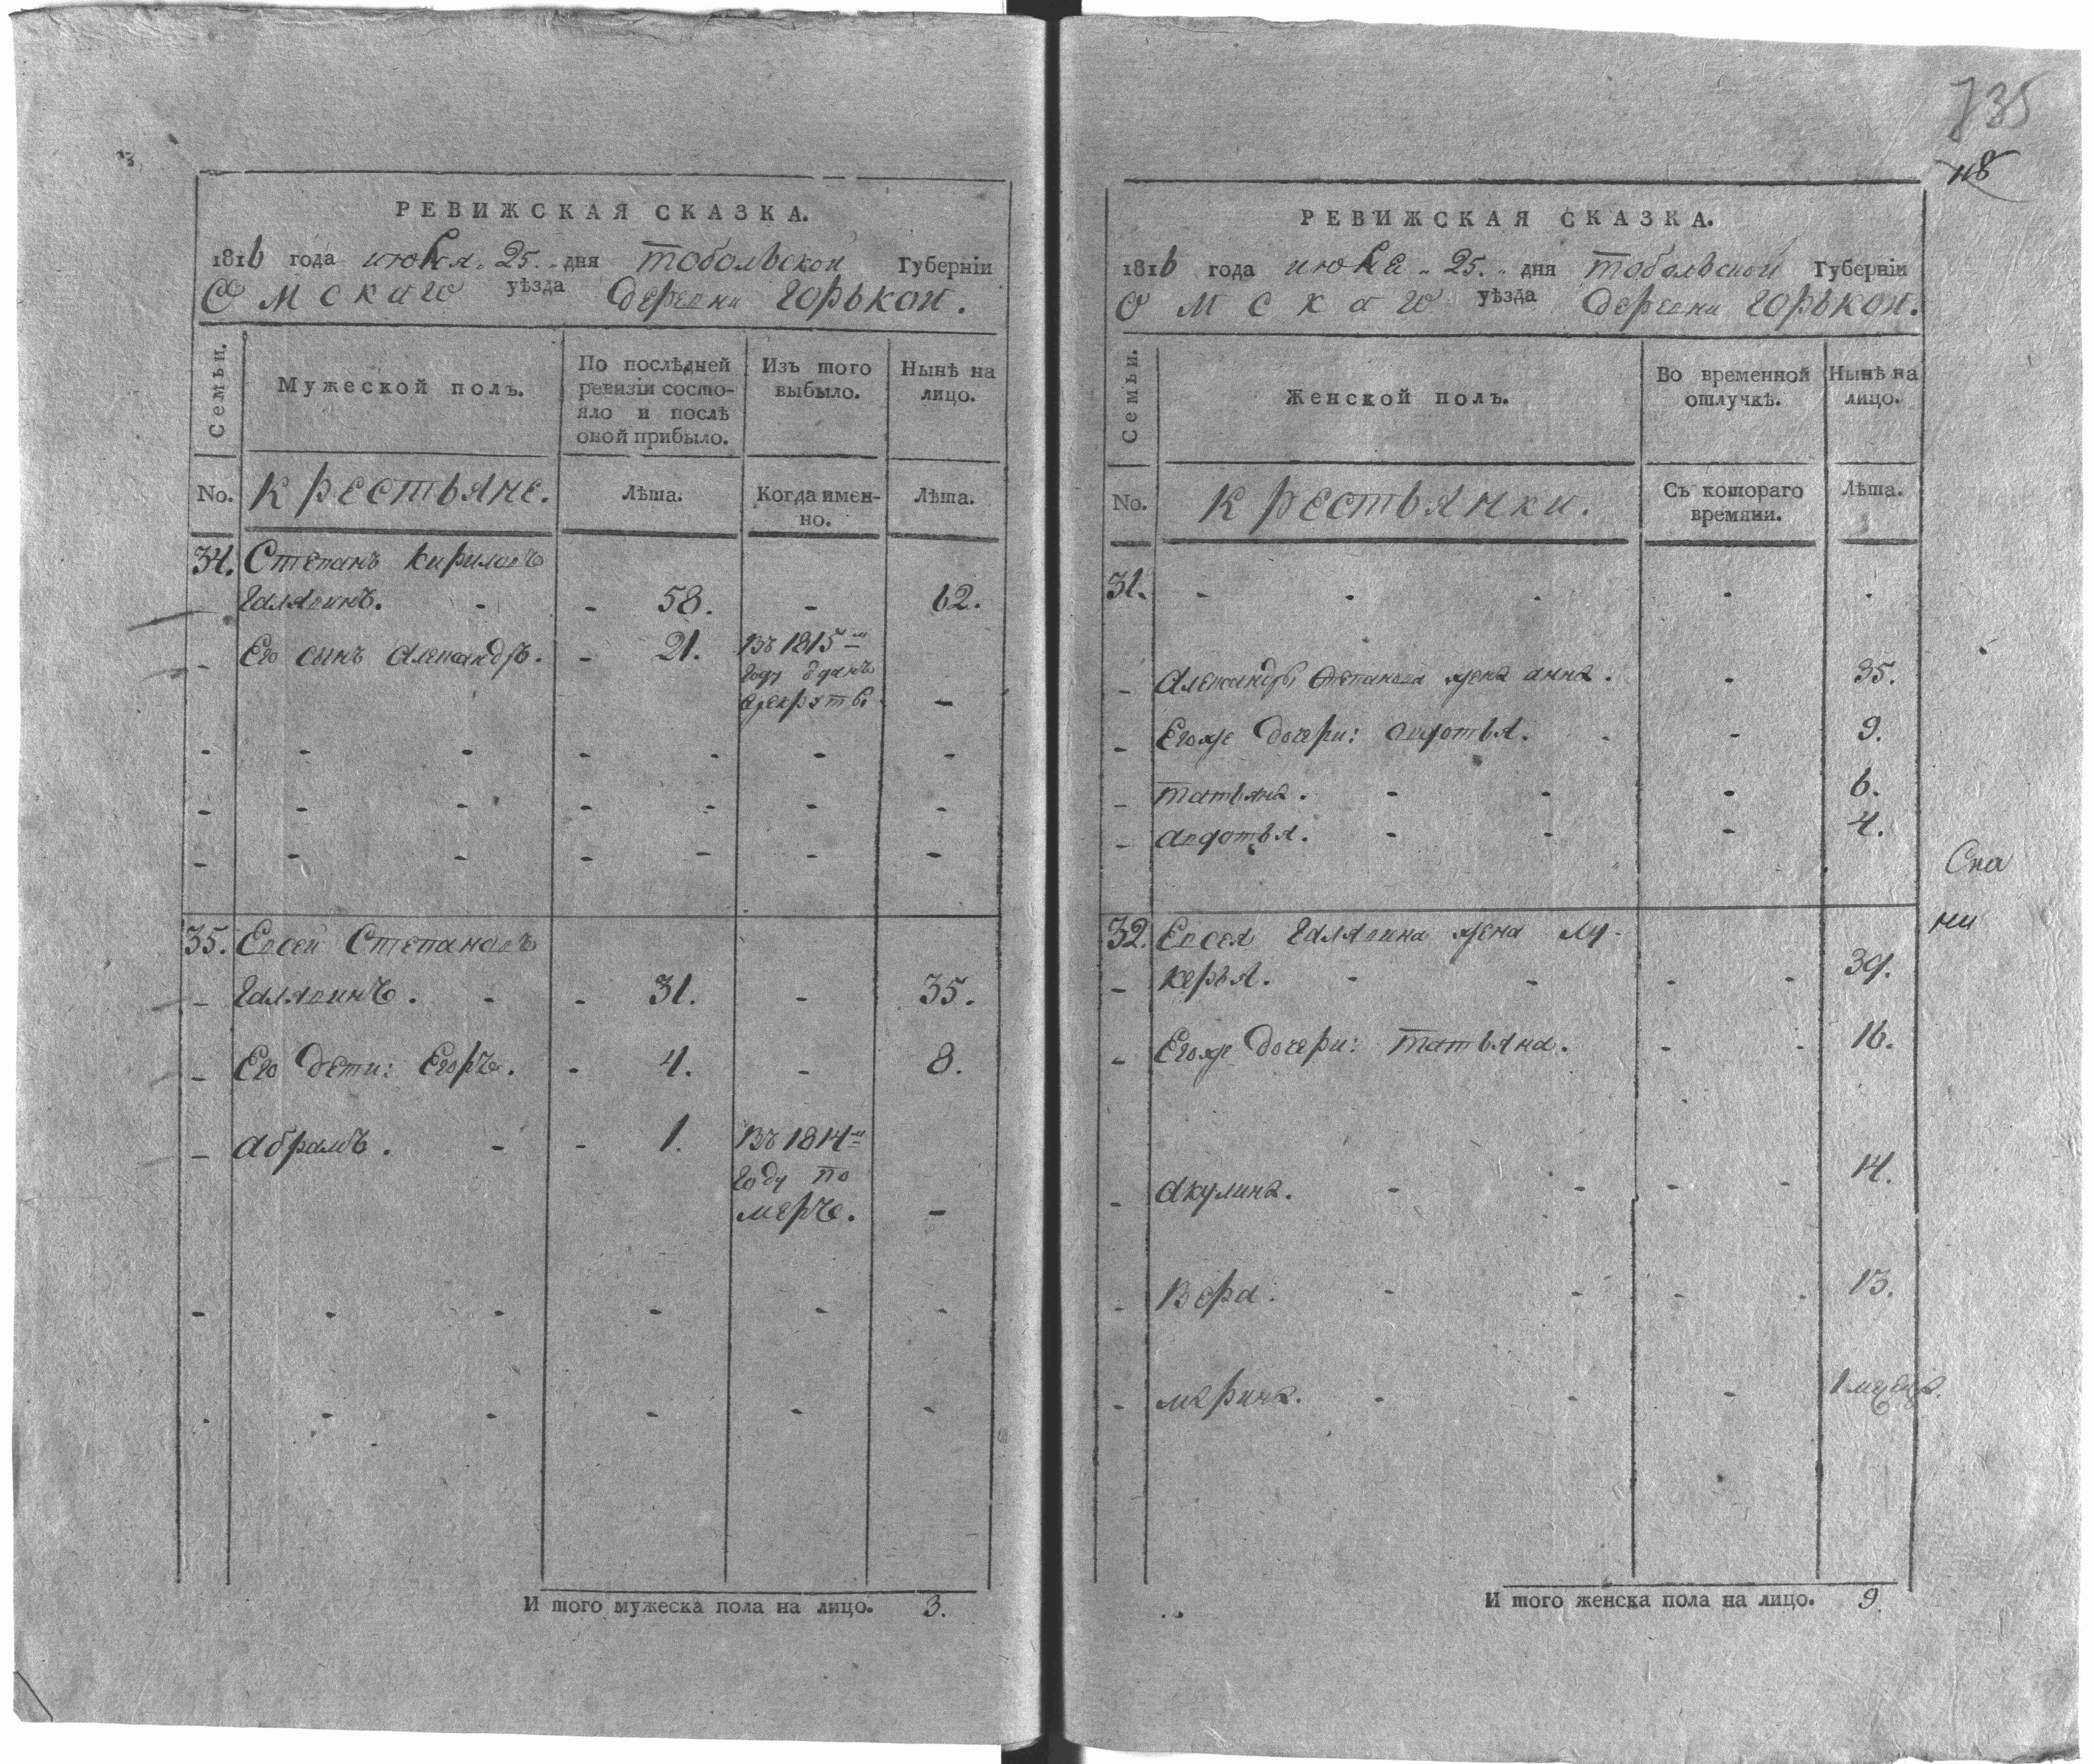 РЕВИЖСКАЯ СКАЗКА.
1816 года июня 25. дня тобольской Губерніи
Омскаго уѣзда деревни Горькой.
Семьи.
Мужеской полъ.
По послѣдней
ревизіи состо-
яло и послѣ
оной прибыло.
Изъ того
выбыло.
Нынѣ на
лицо.
No. Крестьяне. Лѣта. Когда имен-
но. Лѣта.
34. Степанъ Кириловъ
Галявинъ. - - 58. - 62.
- Его сынъ Александръ. - 21. Въ 1815м
году зданъ
врекруты. -
35. Евсей Степановъ
- Галявинъ. - - 31. - 35.
- Его дети: Егоръ. - 4. - 8.
- Абрамъ. - - 1. Въ 1814м
году по
меръ. -
И того мужеска пола на лицо. 3.
735
118
РЕВИЖСКАЯ СКАЗКА.
1816 года июня 25. дня тобольской Губерніи
Омскаго уѣзда деревни Горькой.
Семьи.
Женской полъ.
Во временной
отлучкѣ.
Нынѣ на
лицо.
No. Крестьянки. Съ котораго
времяни. Лѣта.
31. - - - - -
- Александра Степанова жена анна. - 35.
- Егоже дочери: авдотья. - - 9.
- татьяна. - - - 6.
- авдотья. - - - 4.
32. Евсея Галявина жена лу-
- керья. - - - - 39.
- Егоже дочери: татьяна. - - 16.
- Акулина. - - - - 14.
- Вера. - - - - 13.
- марина. - - - 1 месяца.
И того женска пола на лицо. 9.
Ска
ни